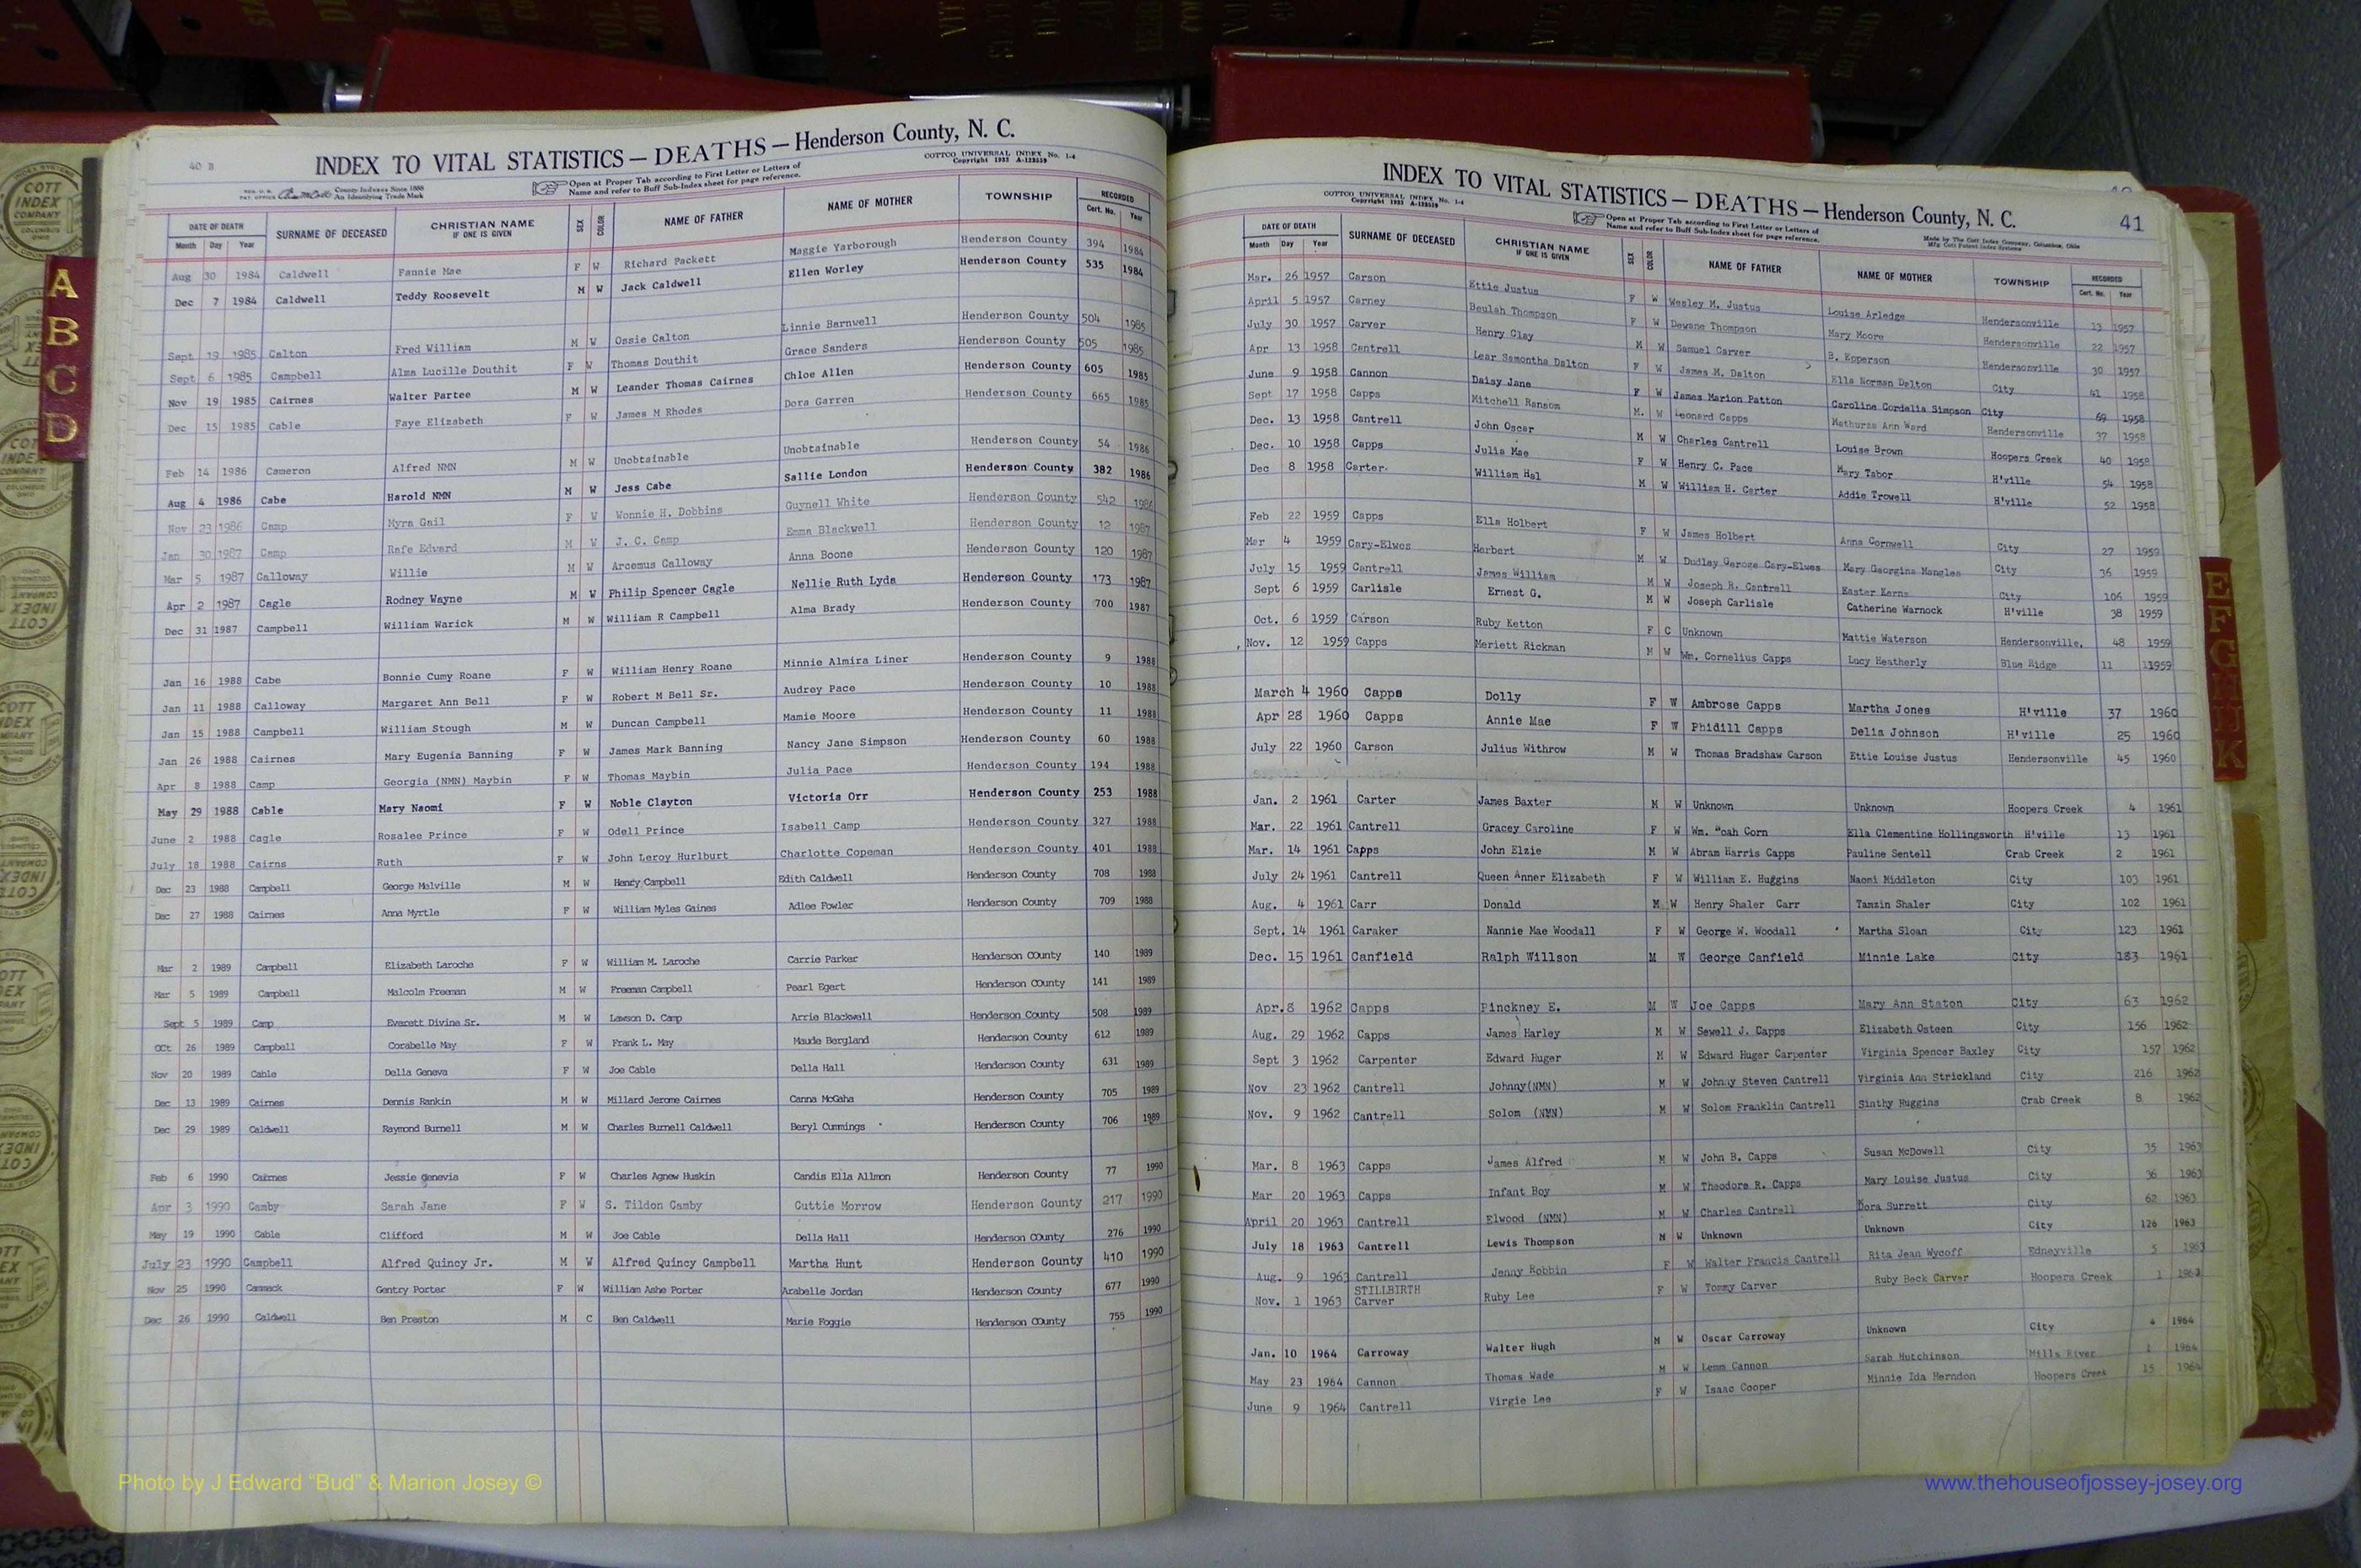 40 B
INDEX TO VITAL STATISTICS — DEATHS — Henderson County, N. C.
COTTCO UNIVERSAL INDEX No. 1-4
Copyright 1933 A-123559
County Indexes Since 1888
An Identifying Trade Mark
Open at Proper Tab according to First Letter or Letters of
Name and refer to Buff Sub-Index sheet for page reference.
DATE OF DEATH SURNAME OF DECEASED CHRISTIAN NAME IF ONE IS GIVEN SEX COLOR NAME OF FATHER NAME OF MOTHER TOWNSHIP RECORDED
Month Day Year Cert. No. Year
Aug 30 1984 Caldwell Fannie Mae F W Richard Packett Maggie Yarborough Henderson County 394 1984
Dec 7 1984 Caldwell Teddy Roosevelt M W Jack Caldwell Ellen Worley Henderson County 535 1984
Sept 19 1985 Calton Fred William M W Ossie Calton Linnie Barnwell Henderson County 504 1985
Sept 6 1985 Campbell Alma Lucille Douthit F W Thomas Douthit Grace Sanders Henderson County 505 1985
Nov 19 1985 Cairnes Walter Partee M W Leander Thomas Cairnes Chloe Allen Henderson County 605 1985
Dec 15 1985 Cable Faye Elizabeth F W James M Rhodes Dora Garren Henderson County 665 1985
Feb 14 1986 Cameron Alfred NMN M W Unobtainable Unobtainable Henderson County 54 1986
Aug 4 1986 Cabe Harold NMN M W Jess Cabe Sallie London Henderson County 382 1986
Nov 23 1986 Camp Myra Gail F W Wonnie H. Dobbins Guynell White Henderson County 542 1986
Jan 30 1987 Camp Rafe Edward M W J. C. Camp Emma Blackwell Henderson County 12 1987
Mar 5 1987 Calloway Willie M W Arcemus Calloway Anna Boone Henderson County 120 1987
Apr 2 1987 Cagle Rodney Wayne M W Philip Spencer Cagle Nellie Ruth Lyda Henderson County 173 1987
Dec 31 1987 Campbell William Warick M W William R Campbell Alma Brady Henderson County 700 1987
Jan 16 1988 Cabe Bonnie Cumy Roane F W William Henry Roane Minnie Almira Liner Henderson County 9 1988
Jan 11 1988 Calloway Margaret Ann Bell F W Robert M Bell Sr. Audrey Pace Henderson County 10 1988
Jan 15 1988 Campbell William Stough M W Duncan Campbell Mamie Moore Henderson County 11 1988
Jan 26 1988 Cairnes Mary Eugenia Banning F W James Mark Banning Nancy Jane Simpson Henderson County 60 1988
Apr 8 1988 Camp Georgia (NMN) Maybin F W Thomas Maybin Julia Pace Henderson County 194 1988
May 29 1988 Cable Mary Naomi F W Noble Clayton Victoria Orr Henderson County 253 1988
June 2 1988 Cagle Rosalee Prince F W Odell Prince Isabell Camp Henderson County 327 1988
July 18 1988 Cairns Ruth F W John Leroy Hurlburt Charlotte Copeman Henderson County 401 1988
Dec 23 1988 Campbell George Melville M W Henry Campbell Edith Caldwell Henderson County 708 1988
Dec 27 1988 Cairnes Anna Myrtle F W William Myles Gaines Adlee Fowler Henderson County 709 1988
Mar 2 1989 Campbell Elizabeth Laroche F W William M. Laroche Carrie Parker Henderson COunty 140 1989
Mar 5 1989 Campbell Malcolm Freeman M W Freeman Campbell Pearl Egert Henderson County 141 1989
Sept 5 1989 Camp Everett Divine Sr. M W Lawson D. Camp Arrie Blackwell Henderson County 508 1989
OCt 26 1989 Campbell Corabelle May F W Frank L. May Maude Bergland Henderson County 612 1989
Nov 20 1989 Cable Della Geneva F W Joe Cable Della Hall Henderson County 631 1989
Dec 13 1989 Cairnes Dennis Rankin M W Millard Jerome Cairnes Canna McGaha Henderson County 705 1989
Dec 29 1989 Caldwell Raymond Burnell M W Charles Burnell Caldwell Beryl Cummings Henderson County 706 1989
Feb 6 1990 Cairnes Jessie Genevia F W Charles Agnew Huskin Candis Ella Allmon Henderson County 77 1990
Apr 3 1990 Camby Sarah Jane F W S. Tildon Camby Cuttie Morrow Henderson County 217 1990
May 19 1990 Cable Clifford M W Joe Cable Della Hall Henderson COunty 276 1990
July 23 1990 Campbell Alfred Quincy Jr. M W Alfred Quincy Campbell Martha Hunt Henderson County 410 1990
Nov 25 1990 Cammack Gentry Porter F W William Ashe Porter Arabelle Jordan Henderson County 677 1990
Dec 26 1990 Caldwell Ben Preston M C Ben Caldwell Marie Foggie Henderson COunty 755 1990
41
INDEX TO VITAL STATISTICS — DEATHS — Henderson County, N. C.
COTTCO UNIVERSAL INDEX No. 1-4
Copyright 1933 A-123559
Open at Proper Tab according to First Letter or Letters of
Name and refer to Buff Sub-Index sheet for page reference.
Made by The Cott Index Company, Columbus, Ohio
DATE OF DEATH SURNAME OF DECEASED CHRISTIAN NAME IF ONE IS GIVEN SEX COLOR NAME OF FATHER NAME OF MOTHER TOWNSHIP RECORDED
Month Day Year Cert. No. Year
Mar. 26 1957 Carson Ettie Justus F W Wesley M. Justus Louise Arledge Hendersonville 13 1957
April 5 1957 Carney Beulah Thompson F W Dewane Thompson Mary Moore Hendersonville 22 1957
July 30 1957 Carver Henry Clay M W Samuel Carver B. Epperson Hendersonville 30 1957
Apr 13 1958 Cantrell Lear Samontha Dalton F W James M. Dalton Ella Norman Dalton City 41 1958
June 9 1958 Cannon Daisy Jane F W James Marion Patton Caroline Cordelia Simpson City 69 1958
Sept 17 1958 Capps Mitchell Ransom M. W Leonard Capps Mathurza Ann Ward Hendersonville 37 1958
Dec. 13 1958 Cantrell John Oscar M W Charles Cantrell Louise Brown Hoopers Creek 40 1958
Dec. 10 1958 Capps Julia Mae F W Henry C. Pace Mary Tabor H'ville 54 1958
Dec 8 1958 Carter. William Hal M W William H. Carter Addie Trowell H'ville 52 1958
Feb 22 1959 Capps Ella Holbert F W James Holbert Anna Cornwell City 27 1959
Mar 4 1959 Cary-Elwes Herbert M W Dudley Geroge Cary-Elwes Mary Georgina Mangles City 36 1959
July 15 1959 Cantrell James William M W Joseph R. Cantrell Easter Kerns City 106 1959
Sept 6 1959 Carlisle Ernest G. M W Joseph Carlisle Catherine Warnock H'ville 38 1959
Oct. 6 1959 Carson Ruby Ketton F C Unknown Mattie Waterson Hendersonville. 48 1959
Nov. 12 1959 Capps Meriett Rickman M W Wm. Cornelius Capps Lucy Heatherly Blue Ridge 11 11959
March 4 1960 Capps Dolly F W Ambrose Capps Martha Jones H'ville 37 1960
Apr 28 1960 Capps Annie Mae F W Phidill Capps Delia Johnson H'ville 25 1960
July 22 1960 Carson Julius Withrow M W Thomas Bradshaw Carson Ettie Louise Justus Hendersonville 45 1960
Jan. 2 1961 Carter James Baxter M W Unknown Unknown Hoopers Creek 4 1961
Mar. 22 1961 Cantrell Gracey Caroline F W Wm. Noah Corn Ella Clementine Hollingsworth H'ville 13 1961
Mar. 14 1961 Capps John Elzie M W Abram Harris Capps Pauline Sentell Crab Creek 2 1961
July 24 1961 Cantrell Queen Anner Elizabeth F W William E. Huggins Naomi Middleton City 103 1961
Aug. 4 1961 Carr Donald M W Henry Shaler Carr Tamzin Shaler City 102 1961
Sept. 14 1961 Caraker Nannie Mae Woodall F W George W. Woodall Martha Sloan City 123 1961
Dec. 15 1961 Canfield Ralph Willson M W George Canfield Minnie Lake City 183 1961
Apr.8 1962 Capps Pinckney E. M W Joe Capps Mary Ann Staton City 63 1962
Aug. 29 1962 Capps James Harley M W Sewell J. Capps Elizabeth Osteen City 156 1962
Sept 3 1962 Carpenter Edward Huger M W Edward Huger Carpenter Virginia Spencer Baxley City 157 1962
Nov 23 1962 Cantrell Johnny(NMN) M W Johnny Steven Cantrell Virginia Ann Strickland City 216 1962
Nov. 9 1962 Cantrell Solom (NMN) M W Solom Franklin Cantrell Sinthy Huggins Crab Creek 8 1962
Mar. 8 1963 Capps James Alfred M W John B. Capps Susan McDowell City 35 1963
Mar 20 1963 Capps Infant Boy M W Theodore R. Capps Mary Louise Justus City 36 1963
April 20 1963 Cantrell Elwood (NMN) M W Charles Cantrell Dora Surrett City 62 1963
July 18 1963 Cantrell Lewis Thompson M W Unknown Unknown City 126 1963
Aug. 9 1963 Cantrell Jenny Robbin F W Walter Francis Cantrell Rita Jean Wycoff Edneyville 5 1963
STILLBIRTH
Nov. 1 1963 Carver Ruby Lee F W Tommy Carver Ruby Beck Carver Hoopers Creek 1 1963
Jan. 10 1964 Carroway Walter Hugh M W Oscar Carroway Unknown City 4 1964
May 23 1964 Cannon Thomas Wade M W Lemm Cannon Sarah Hutchinson Mills River 1 1964
June 9 1964 Cantrell Virgie Lee F W Isaac Cooper Minnie Ida Herndon Hoopers Creek 15 1964
A
B
C
D
E
F
G
H
K
COTT
INDEX
COMPANY
COLUMBUS
OHIO
Photo by J Edward “Bud” & Marion Josey ©
www.thehouseofjossey-josey.org